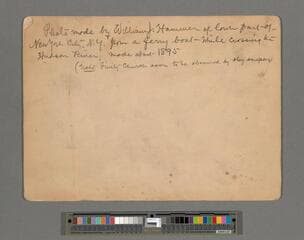 Photo made by William J. Hammer of lower part-of-
New York City, N.Y. from a ferry boat-while crossing the
Hudson River, made about 1895
(Note Trinity Church soon to be obscured by skyscrapers)